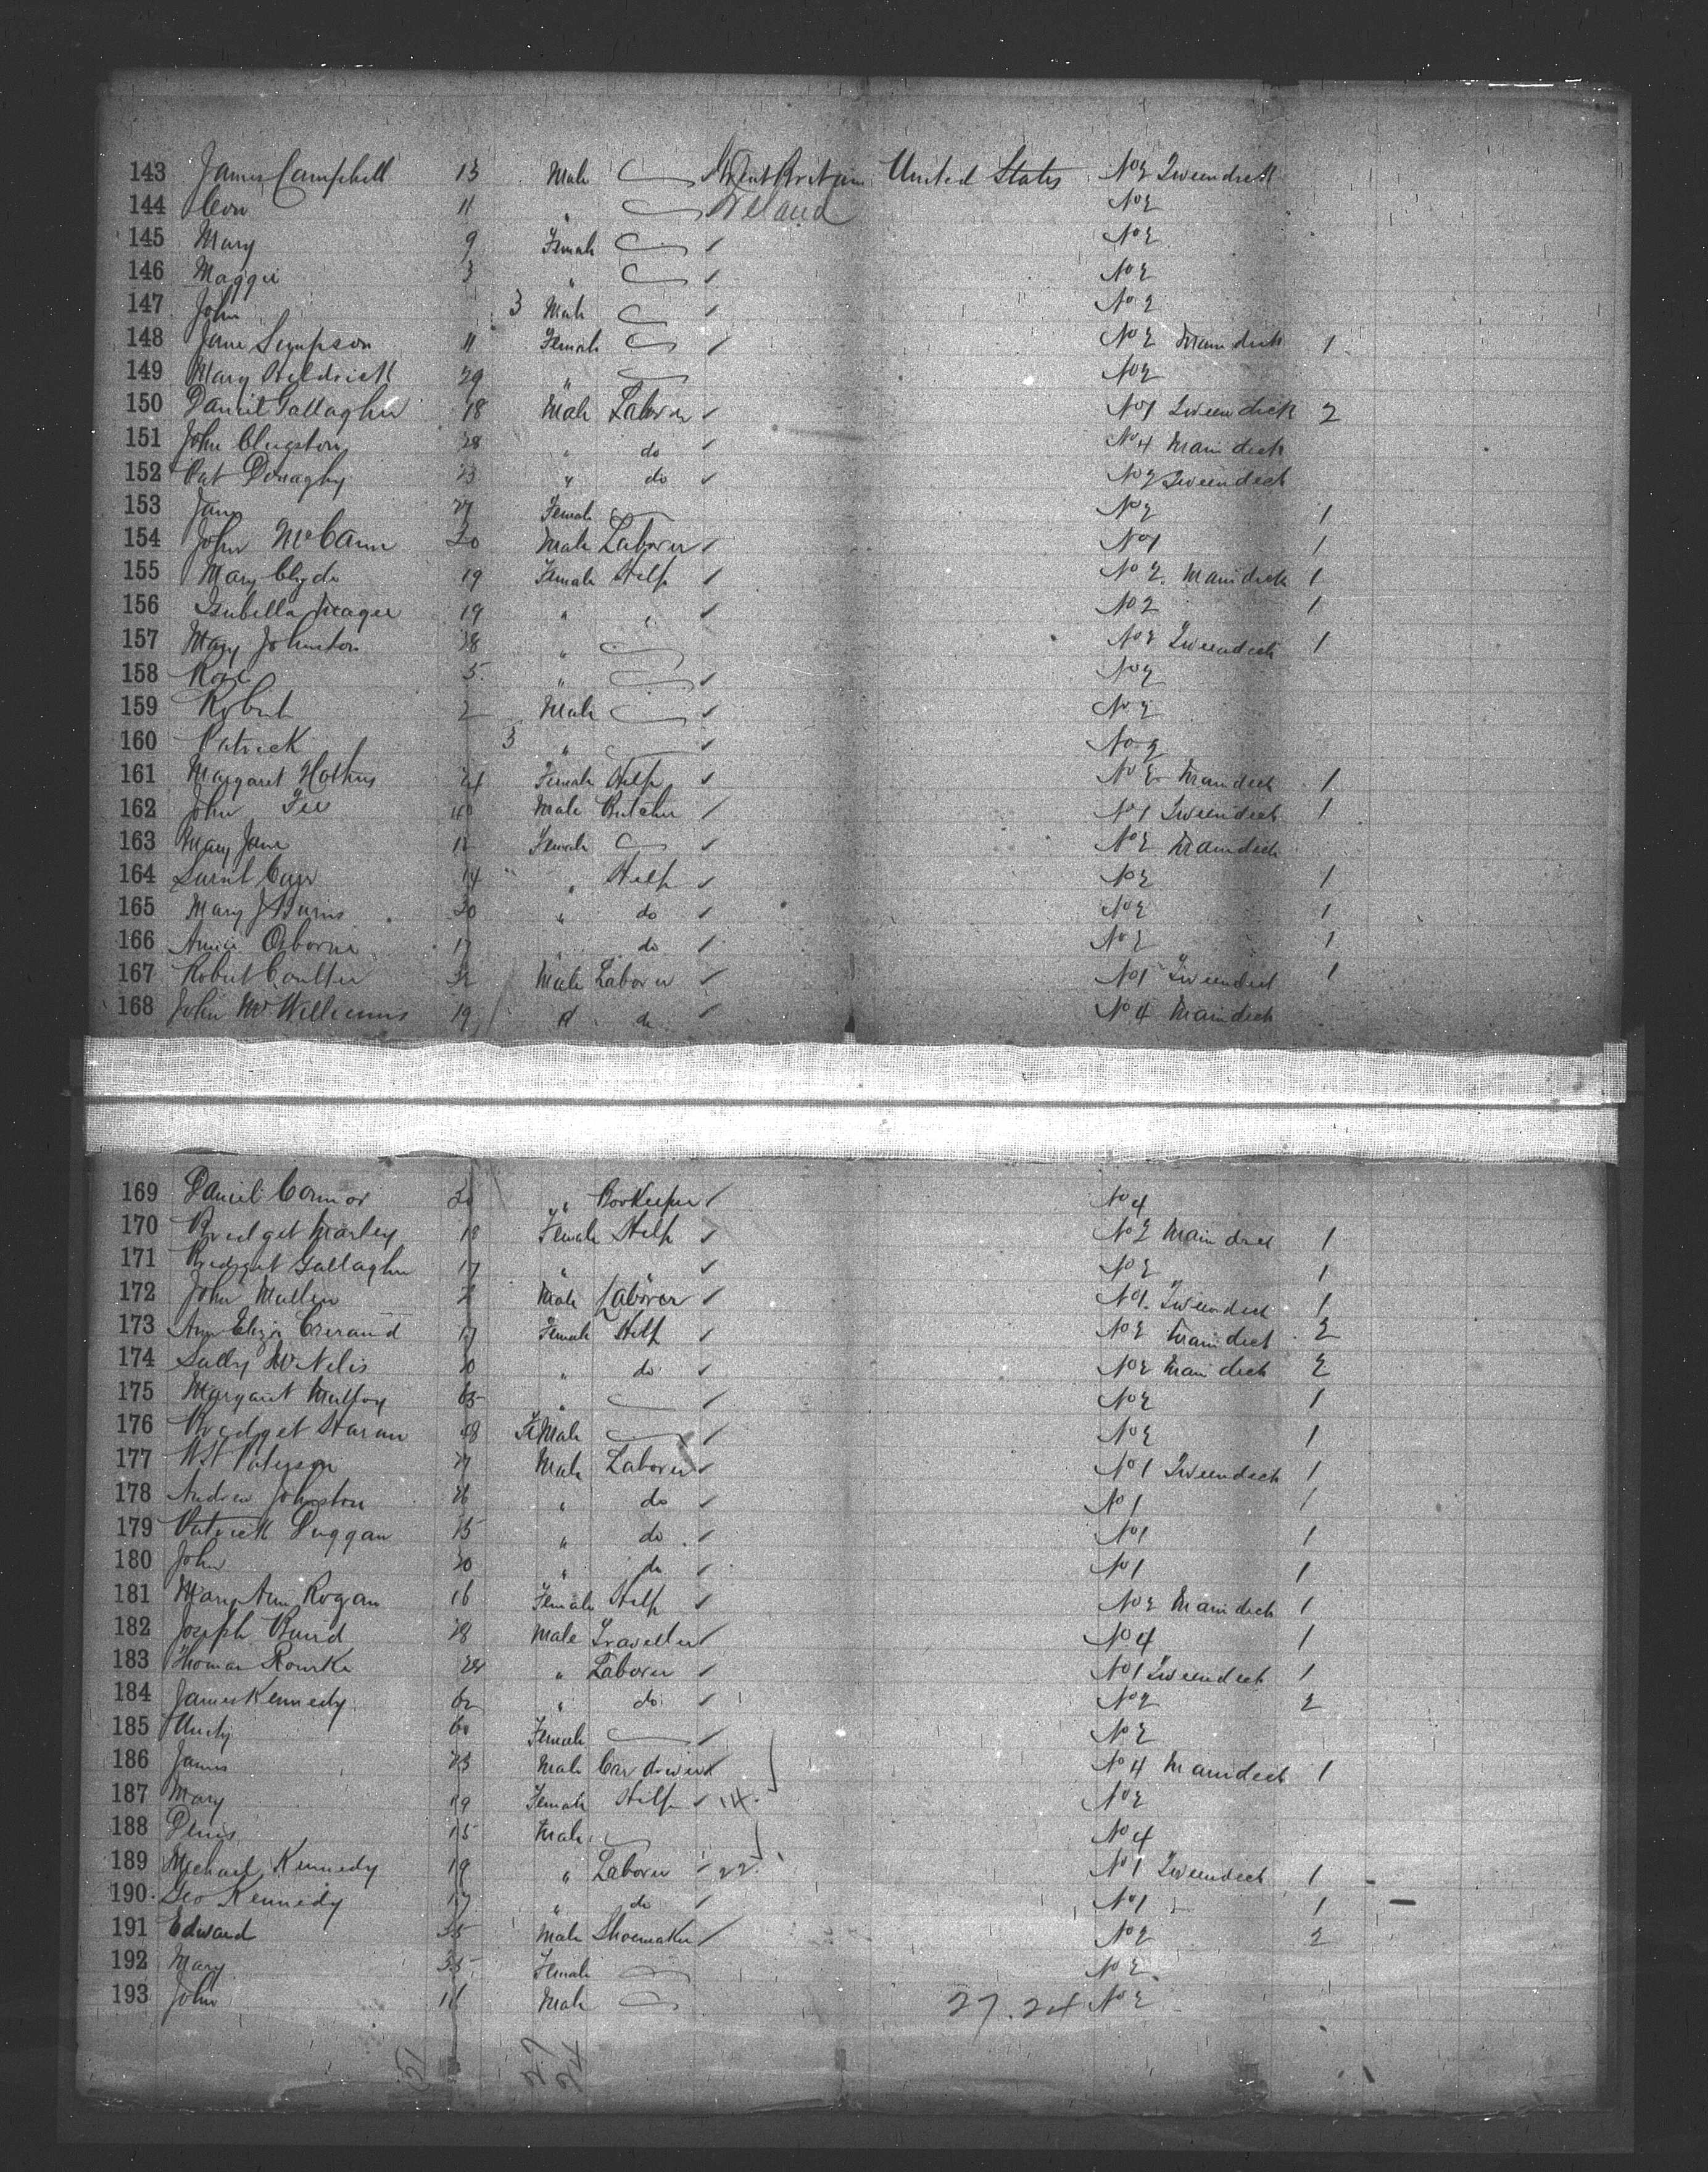 143 James Campbell 13 Male Great Britain United States No 2 Tweendeck
144 11 " Ireland No 2
145 Mary 9 Female ✓ No 2
146 Maggie 3 " ✓ No 2
147 John 3 Male ✓ No 2
148 Jane Simpson 11 Female ✓ No 2 Main deck 1
149 Mary 29 " No 2
150 Daniel Gallagher 18 Male Laborer ✓ No 1 Tweendeck 2
151 John 28 " do ✓ No 4 Main deck
152 Pat Donaghy 23 " do ✓ No 2 Tweendeck
153 Jane 27 Female No 2 1
154 John McCann 20 Male Laborer ✓ No 1 1
155 Mary Clyde 19 Female Help ✓ No 2 Main deck 1
156 Isabella Magee 19 " " ✓ No 2 1
157 Mary Johnston 28 " No 2 Tweendeck 1
158 Rose 5 " ✓ No 2
159 Robert 2 Male ✓ No 2
160 Patrick 3 " ✓ No 2
161 Margaret Female Help ✓ No 2 Main deck 1
162 John Fee 40 Male Butcher ✓ No 1 Tweendeck 1
163 Mary Jane Female ✓ No 2 Main deck
164 Carr " Help ✓ No 2 1
165 Mary J Burns 20 " do ✓ No 2 1
166 Annie Osborne 17 do ✓ No 2 1
167 Robert Coulter Male Laborer ✓ No 1 Tweendeck 1
168 John McWilliams 19 " do ✓ No 4 Main deck
169 Daniel Connor 20 " Bookeeper ✓ No 4
170 Bridget Marley 18 Female Help ✓ No 2 Main deck 1
171 Bridget Gallagher 17 " " ✓ No 2 1
172 John Mullen Male Laborer ✓ No 1 Tweendeck 1
173 Ann Eliza 17 Female Help ✓ No 2 Main deck 2
174 Sally McNelis 20 " do ✓ No 2 Main deck 2
175 Margaret 65 " ✓ No 2 1
176 Bridget 48 FeMale ✓ No 2 1
177 27 Male Laborer ✓ No 1 Tweendeck 1
178 Andrew Johnston 26 " do ✓ No 1 1
179 Patrick Duggan " do ✓ No 1 1
180 John 20 " do ✓ No 1 1
181 Mary Ann Rogan 16 Female Help ✓ No 2 Main deck 1
182 Joseph 28 Male Traveller ✓ No 4 1
183 Thomas Rourke " Laborer ✓ No 1 Tweendeck 1
184 James Kennedy 62 " do ✓ No 2 2
185 60 Female ✓ No 2
186 James 23 Male Car driver ✓ No 4 Main deck 1
187 Mary 19 Female Help ✓ 14 No 2
188 Denis 15 Male No 4
189 Michael Kennedy 19 " Laborer 22 No 1 Tweendeck 1
190 Geo Kennedy 17 " do ✓ No 1 1
191 Edward 35 Male Shoemaker ✓ No 2 2
192 Mary 35 Female No 2
193 John 11 Male 27.24 No 2
51 27
24